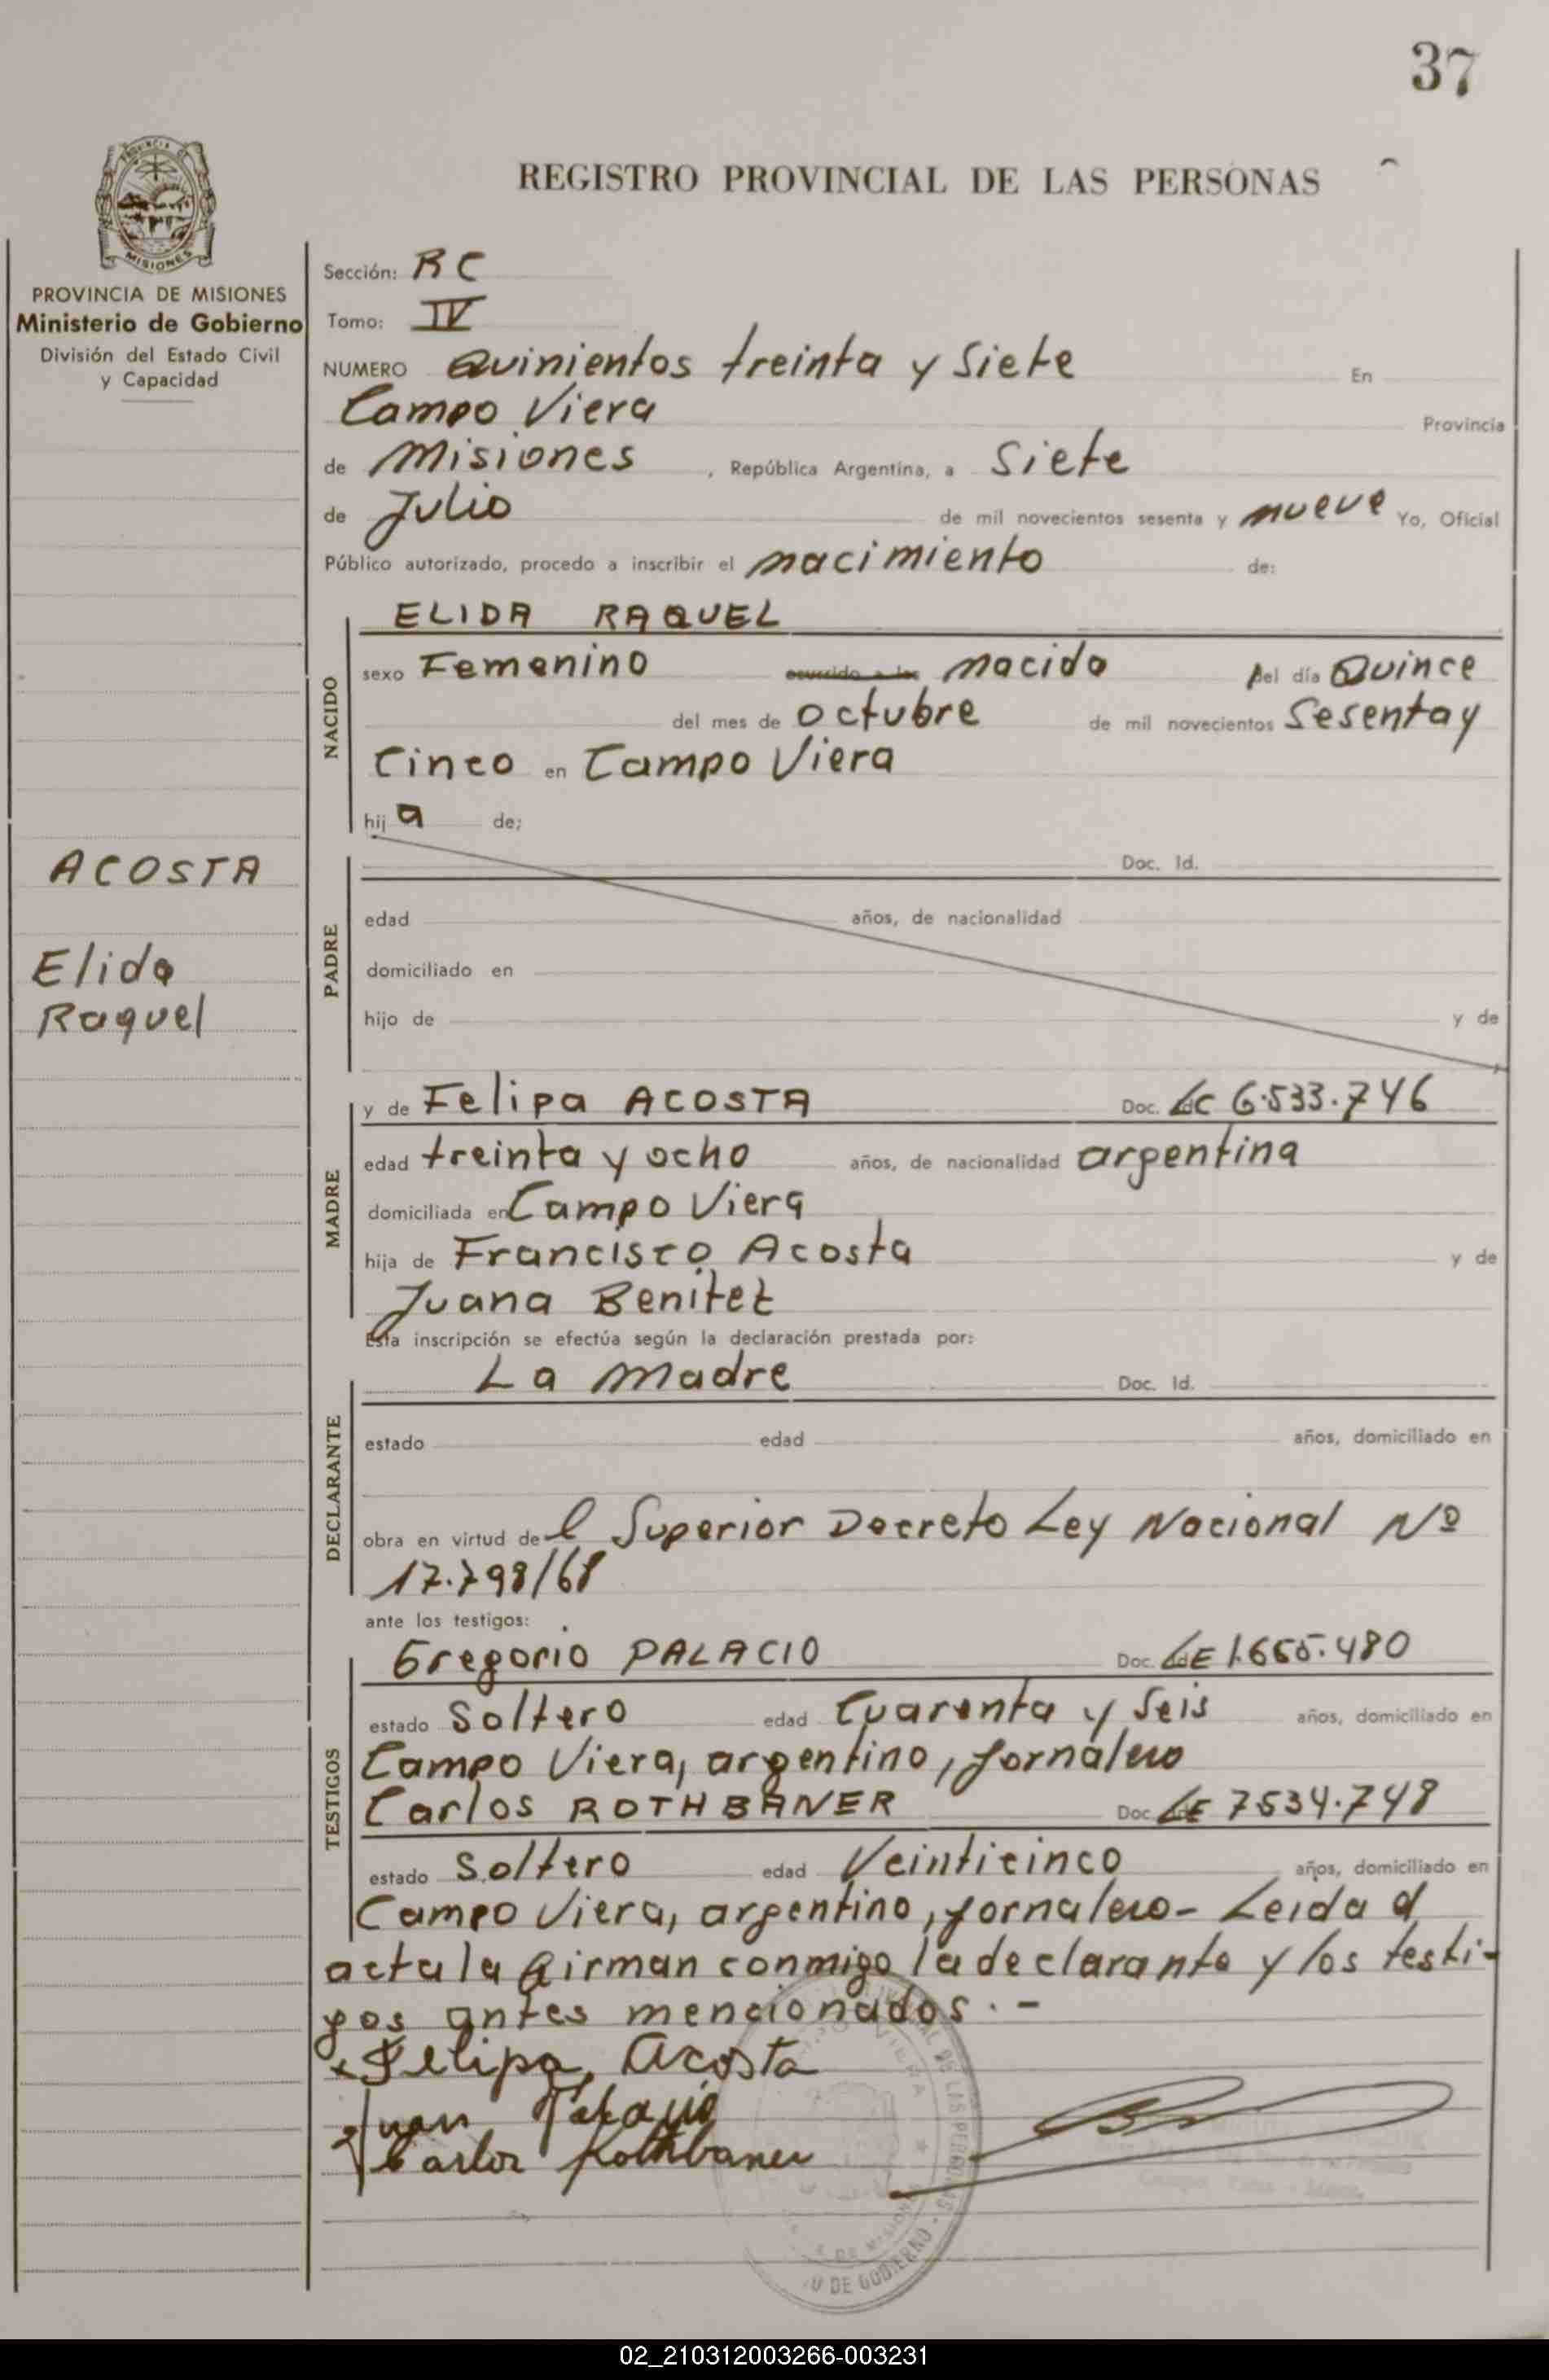 37
REGISTRO PROVINCIAL DE LAS PERSONAS
PROVINCIA DE MISIONES
Ministerio de Gobierno
División del Estado Civil
y Capacidad
Sección: RC
Tomo: IV
NUMERO Quinientos treinta y Siete En
Campo Viera Provincia
de Misiones , República Argentina, a Siete
de Julio de mil novecientos sesenta y nueve Yo, Oficial
Público autorizado, procedo a inscribir el nacimiento de:
NACIDO
ELIDA RAQUEL
sexo Femenino ocurrido a las nacida del día Quince
del mes de octubre de mil novecientos Sesenta y
Cinco en Campo Viera
hij a de;
ACOSTA
Elida
Raquel
PADRE
Doc. Id.
edad años, de nacionalidad
domiciliado en
hijo de y de
MADRE
y de Felipa ACOSTA Doc. LC 6.533.746
edad treinta y ocho años, de nacionalidad argentina
domiciliada en Campo Viera
hija de Francisco Acosta y de
Juana Benitez
Esta inscripción se efectúa según la declaración prestada por:
DECLARANTE
La Madre Doc. Id.
estado edad años, domiciliado en
obra en virtud de l Superior Decreto Ley Nacional Nº
17.798/68
ante los testigos:
TESTIGOS
Gregorio PALACIO Doc. LE 1.655.480
estado Soltero edad Cuarenta y Seis años, domiciliado en
Campo Viera, argentino, jornalero
Carlos ROTHBANER Doc. LE 7534.748
estado Soltero edad Veinticinco años, domiciliado en
Campo Viera, argentino, jornalero - Leida el
acta la firman conmigo la declarante y los testi-
gos antes mencionados. -
x Felipa Acosta
Juan
Carlos Rothbaner
02_210312003266-003231